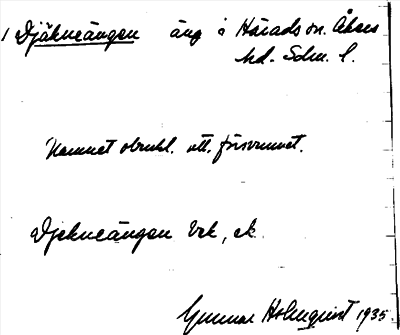 1 Djäkneängen äng å Härads sn. Åkers
hd. Sdm. l.
Namnet obrukl. ell. försvunnet.
Djekneängen Vek, ek.
Gunnar Holmquist 1935.